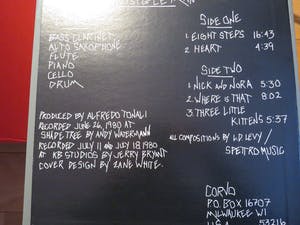 BASS CLARINET
ALTO SAXOPHONE
FLUTE
PIANO
CELLO
DRUM
PRODUCED BY ALFREDO TONALI
RECORDED JUNE 26, 1980 AT
SHADE TREE BY ANDY WATERMANN
RECORDED JULY 11 AND JULY 18 1980
AT RB STUDIOS BY JERRY BRYNT
COVER DESIGN BY ZANE WHITE.
SIDE ONE
1. EIGHT STEPS 16:43
2. HEART 4:39
SIDE TWO
1. NICK AND NORA 5:30
2. WHERE IS THAT 8:02
3. THREE LITTLE
KITTENS 5:37
ALL COMPOSITIONS BY L.D. LEVY /
SPETTRO MUSIC
CORVO
P.O. BOX 16707
MILWAUKEE WI
U.S.A. 53216